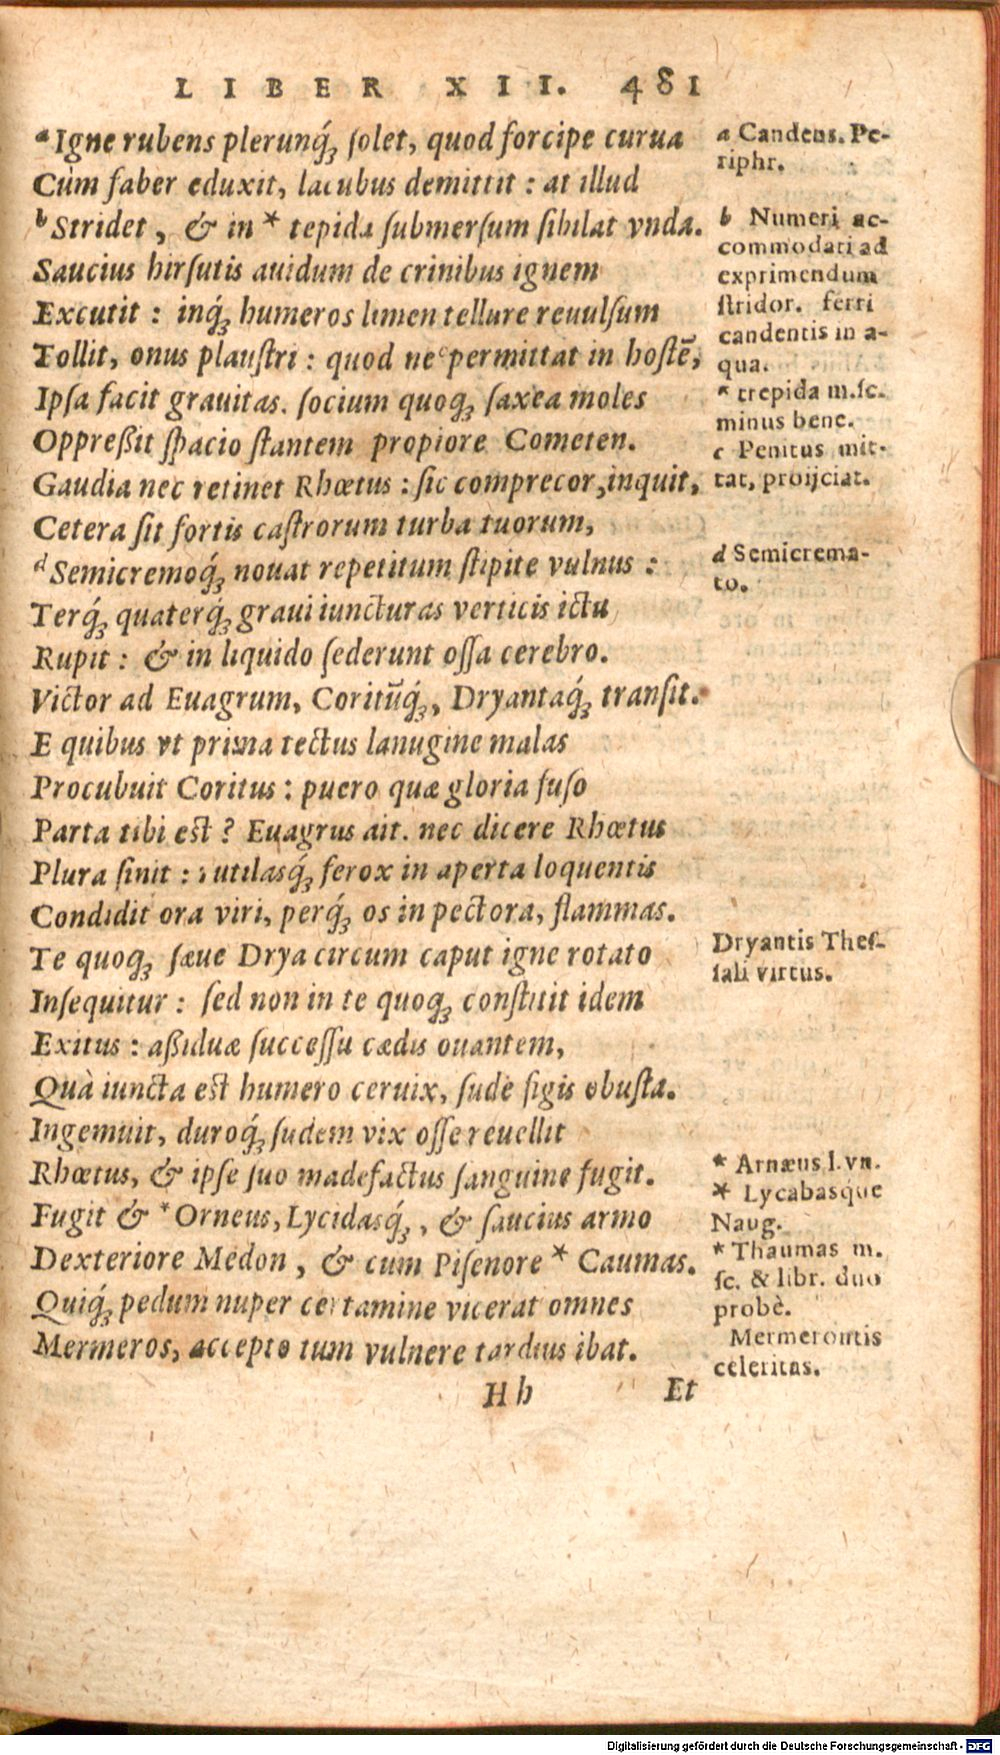 LIBER XII. 481
a Igne rubens plerunq́ꝫ ſolet, quod forcipe curua
Cùm faber eduxit, lacubus demittit : at illud
b Stridet, & in * tepida ſubmerſum ſibilat vnda.
Saucius hirſutis auidum de crinibus ignem
Excutit : inq́ꝫ humeros limen tellure reuulſum
Tollit, onus plauſtri : quod ne c permittat in hoſtē,
Ipſa facit grauitas. ſocium quoqꝫ ſaxea moles
Oppreßit ſpacio ſtantem propiore Cometen.
Gaudia nec retinet Rhœtus : ſic comprecor, inquit,
Cetera ſit fortis caſtrorum turba tuorum,
d Semicremoq́ꝫ nouat repetitum ſtipite vulnus :
Terq́ꝫ quaterq́ꝫ graui iuncturas verticis ictu
Rupit : & in liquido ſederunt oſſa cerebro.
Victor ad Euagrum, Coritūq́ꝫ, Dryantaq́ꝫ tranſit.
E quibus vt prima tectus lanugine malas
Procubuit Coritus : puero quæ gloria fuſo
Parta tibi eſt ? Euagrus ait. nec dicere Rhœtus
Plura ſinit : rutilasq́ꝫ ferox in aperta loquentis
Condidit ora viri, perq́ꝫ os in pectora, flammas.
Te quoqꝫ ſæue Drya circum caput igne rotato
Inſequitur : ſed non in te quoqꝫ conſtitit idem
Exitus : aßiduæ ſucceſſu cædis ouantem,
Quà iuncta eſt humero ceruix, ſude figis obuſta.
Ingemuit, duroq́ꝫ ſudem vix oſſe reuellit
Rhœtus, & ipſe ſuo madefactus ſanguine fugit.
Fugit & * Orneus, Lycidasq́ꝫ, & ſaucius armo
Dexteriore Medon, & cum Piſenore * Caumas.
Quiq́ꝫ pedum nuper certamine vicerat omnes
Mermeros, accepto tum vulnere tardius ibat.
Hh Et
a Candens. Pe-
riphr.
b Numeri ac-
commodati ad
exprimendum
ſtridor. ferri
candentis in a-
qua.
* trepida m.ſc.
minus bene.
c Penitus mit-
tat, proijciat.
d Semicrema-
to.
Dryantis Theſ-
ſali virtus.
* Arnæus l. vn.
* Lycabasque
Naug.
* Thaumas m.
ſc. & libr. duo
probè.
Mermerontis
celeritas.
Digitalisierung gefördert durch die Deutsche Forschungsgemeinschaft - DFG